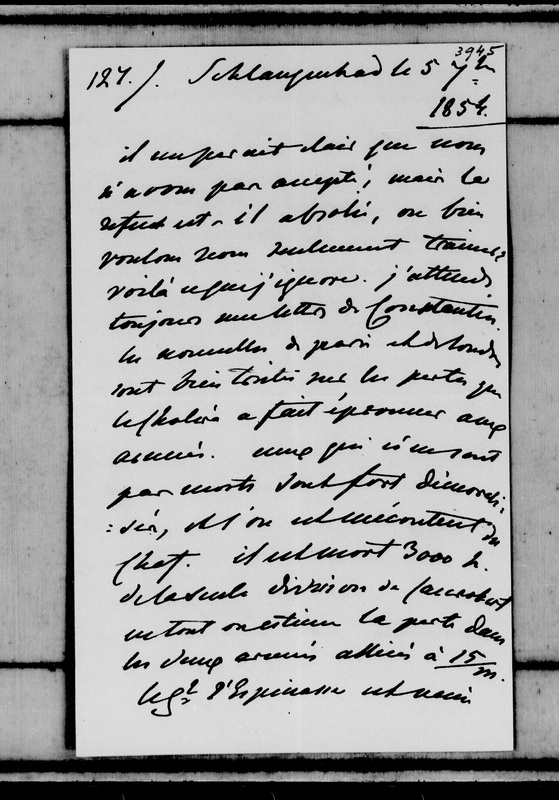 3945
127. J. Schlangenbad le 5 7bre
1854.
il me parait clair que nous
n'avons pas accepté; mais le
refus est-il absolu, ou bien
voulons nous seulement trainer,
voilà ce que j'ignore. j'attends
toujours une lettre de Constantin.
les nouvelles de paris et de londres
sont bien tristes sur les pertes que
le Choléra a fait éprouver aux
armées. ceux qui n'en sont
pas morts sont fort démorali-
=sés, et l'on est mécontent du
Chef. il est mort 3000 h.
de la seule division de Canrobert
en tout on estime la perte dans
les deux armées alliées à 15/m.
le gl l'Espinasse est